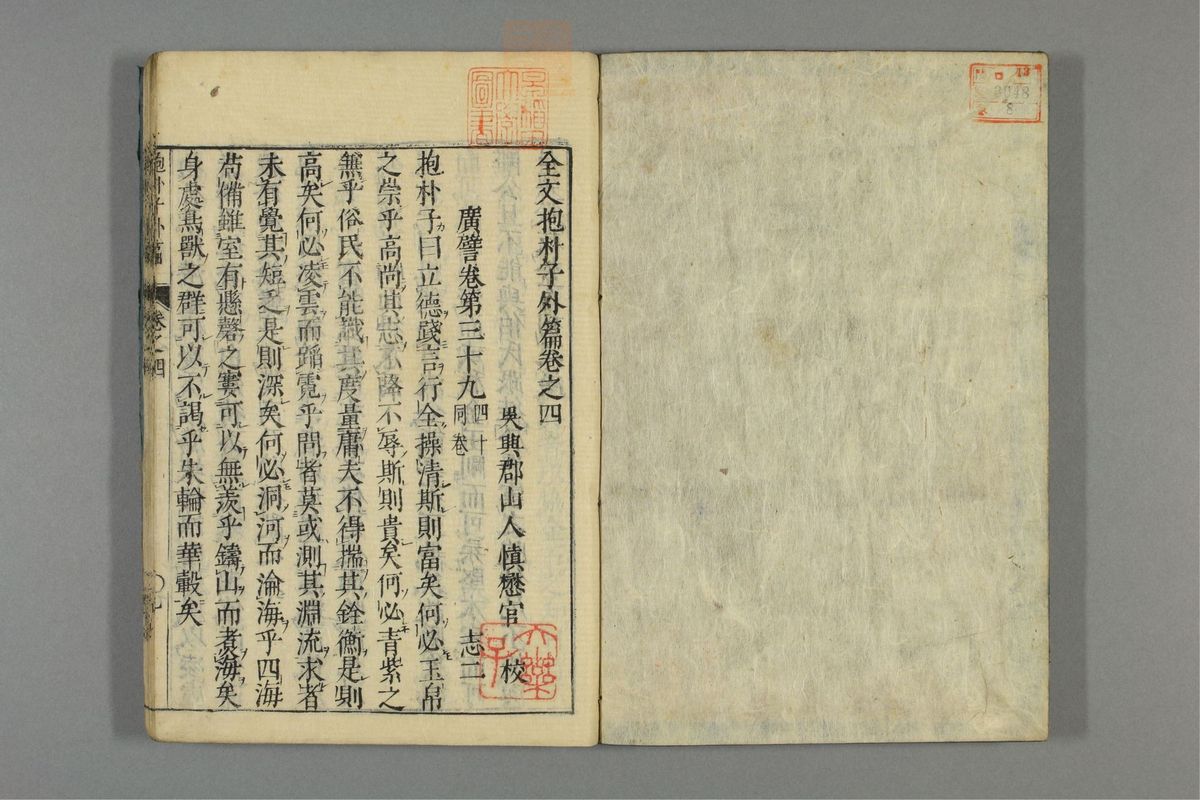 全文抱朴子外篇卷之四
吳興郡山人慎懋官 校
廣譬卷第三十九 四十同卷 志二
抱朴子曰立德踐言行全操清斯則富矣何必玉帛
之崇乎高尚其志不降不辱斯則貴矣何必青紫之
無乎俗民不能識其度量庸夫不得揣其銓衡是則
高矣何必凌雲而蹈霓乎問者莫或測其淵流求者
未有覺其短乏是則深矣何必洞河而淪海乎四海
苟備雖室有懸磬之窶可以無羨乎鑄山而煑海矣
身處鳥獸之群可以不謁乎朱輪而華轂矣
抱朴子外篇 卷之四
13
3948
8